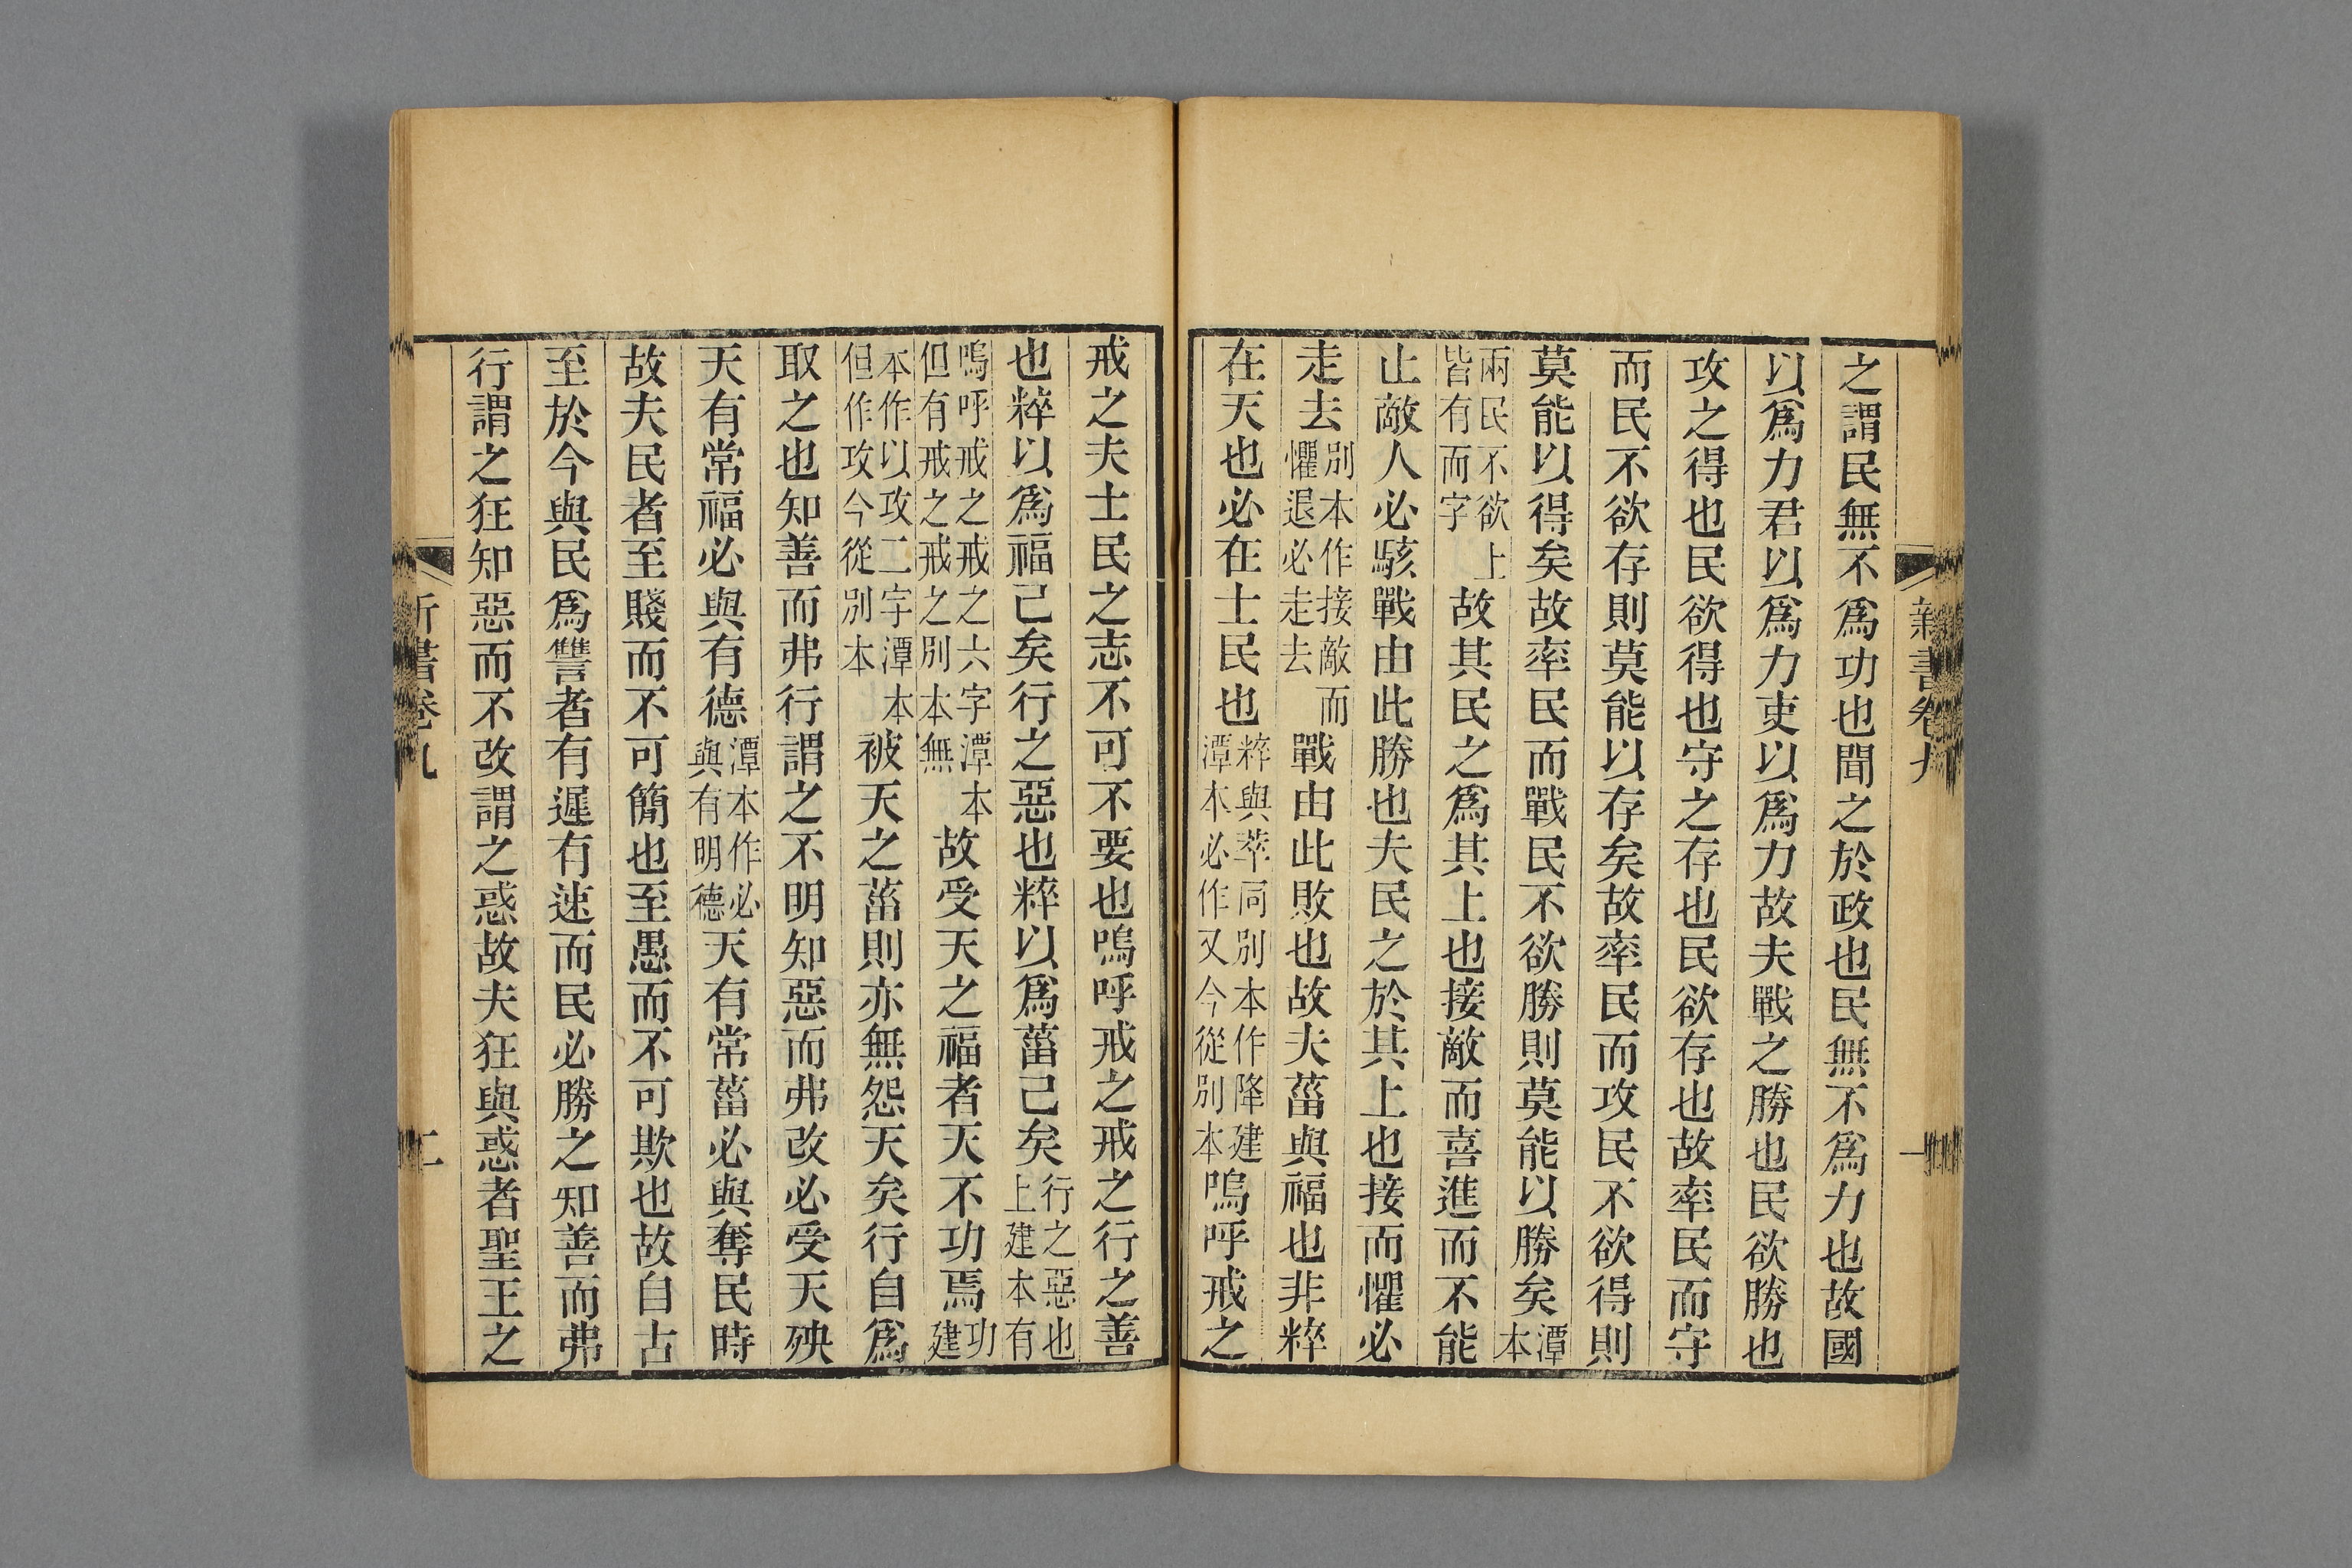 之謂民無不爲功也聞之於政也民無不爲力也故國
以爲力君以爲力吏以爲力故夫戰之勝也民欲勝也
攻之得也民欲得也守之存也民欲存也故率民而守
而民不欲存則莫能以存矣故率民而攻民不欲得則
莫能以得矣故率民而戰民不欲勝則莫能以勝矣潭本
兩民不欲上皆有而字故其民之爲其上也接敵而喜進而不能
止敵人必駭戰由此勝也夫民之於其上也接而懼必
走去別本作接敵而懼退必走去戰由此敗也故夫菑與福也非粹
在天也必在士民也粹與萃同別本作降建潭本必作又今從別本嗚呼戒之
新書卷九
一
戒之夫士民之志不可不要也嗚呼戒之戒之行之善
也粹以爲福己矣行之惡也粹以爲菑己矣行之惡也上建本有
嗚呼戒之戒之六字潭本但有戒之戒之別本無故受天之福者天不功焉功建
本作以攻二字潭本但作攻今從別本被天之菑則亦無怨天矣行自爲
取之也知善而弗行謂之不明知惡而弗改必受天殃
天有常福必與有德潭本作必與有明德天有常菑必與奪民時
故夫民者至賤而不可簡也至愚而不可欺也故自古
至於今與民爲讐者有遲有速而民必勝之知善而弗
行謂之狂知惡而不改謂之惑故夫狂與惑者聖王之
新書卷九
二